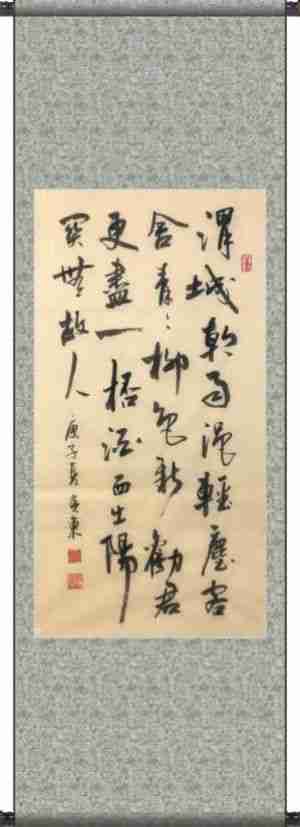 渭城朝雨浥輕塵客
舍青々柳色新勸君
更盡一桮酒西出陽
關無故人
庚子夏